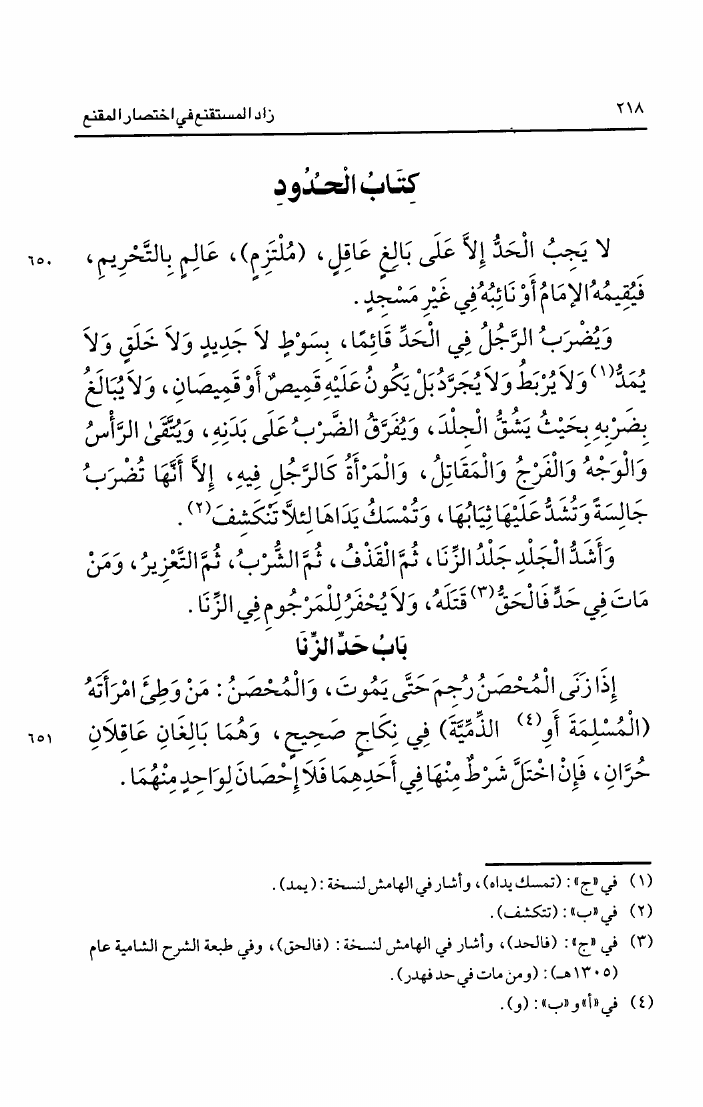 ٢١٨ زاد المستقنع في اختصار المقنع
كِتَابُ الْحُدُودِ
لا يَجِبُ الْحَدُّ إِلاَّ عَلَى بَالِغٍ عَاقِلٍ، (مُلْتَزِمٍ)، عَالِمٍ بِالتَّحْرِيمِ، ٦٥٠
فَيُقِيمُهُ الإِمَامُ أَوْ نَائِبُهُ فِي غَيْرِ مَسْجِدٍ.
وَيُضْرَبُ الرَّجُلُ فِي الْحَدِّ قَائِمًا، بِسَوْطٍ لاَ جَدِيدٍ وَلاَ خَلَقٍ وَلاَ
يُمَدُّ(١) وَلاَ يُرْبَطُ وَلاَ يُجَرَّدُ بَلْ يَكُونُ عَلَيْهِ قَمِيصٌ أَوْ قَمِيصَانِ، وَلاَ يُبَالَغُ
بِضَرْبِهِ بِحَيْثُ يَشُقُّ الْجِلْدَ، وَيُفَرَّقُ الضَّرْبُ عَلَى بَدَنِهِ، وَيُتَّقَىٰ الرَّأْسُ
وَالْوَجْهُ وَالْفَرْجُ وَالْمَقَاتِلُ، وَالْمَرْأَةُ كَالرَّجُلِ فِيهِ، إِلاَّ أَنَّهَا تُضْرَبُ
جَالِسَةً وَتُشَدُّ عَلَيْهَا ثِيَابُهَا، وَتُمْسَكُ يَدَاهَا لِئلاَّ تَنْكَشِفَ(٢).
وَأَشَدُّ الْجَلْدِ جَلْدُ الزِّنَا، ثُمَّ الْقَذْفُ، ثُمَّ الشُّرْبُ، ثُمَّ التَّعْزِيرُ، وَمَنْ
مَاتَ فِي حَدٍّ فَالْحَقُّ(٣) قَتَلَهُ، وَلاَ يُحْفَرُ لِلْمَرْجُومِ فِي الزِّنَا.
بَابُ حَدِّ الزِّنَا
إِذَا زَنَى الْمُحْصَنُ رُجِمَ حَتَّى يَمُوتَ، وَالْمُحْصَنُ: مَنْ وَطِئَ امْرَأَتَهُ
(الْمُسْلِمَةَ أَوِ(٤) الذِّمِّيَّةَ) فِي نِكَاحٍ صَحِيحٍ، وَهُمَا بَالِغَانِ عَاقِلاَنِ ٦٥١
حُرَّانِ، فَإِنْ اخْتَلَّ شَرْطٌ مِنْهَا فِي أَحَدِهِمَا فَلاَ إِحْصَانَ لِوَاحِدٍ مِنْهُمَا.
(١) في «ج»: (تمسك يداه)، وأشار في الهامش لنسخة: (يمد).
(٢) في «ب»: (تتكشف).
(٣) في «ج»: (فالحد)، وأشار في الهامش لنسخة: (فالحق)، وفي طبعة الشرح الشامية عام
(١٣٠٥هـ): (ومن مات في حد فهدر).
(٤) في «أ» و«ب»: (و).